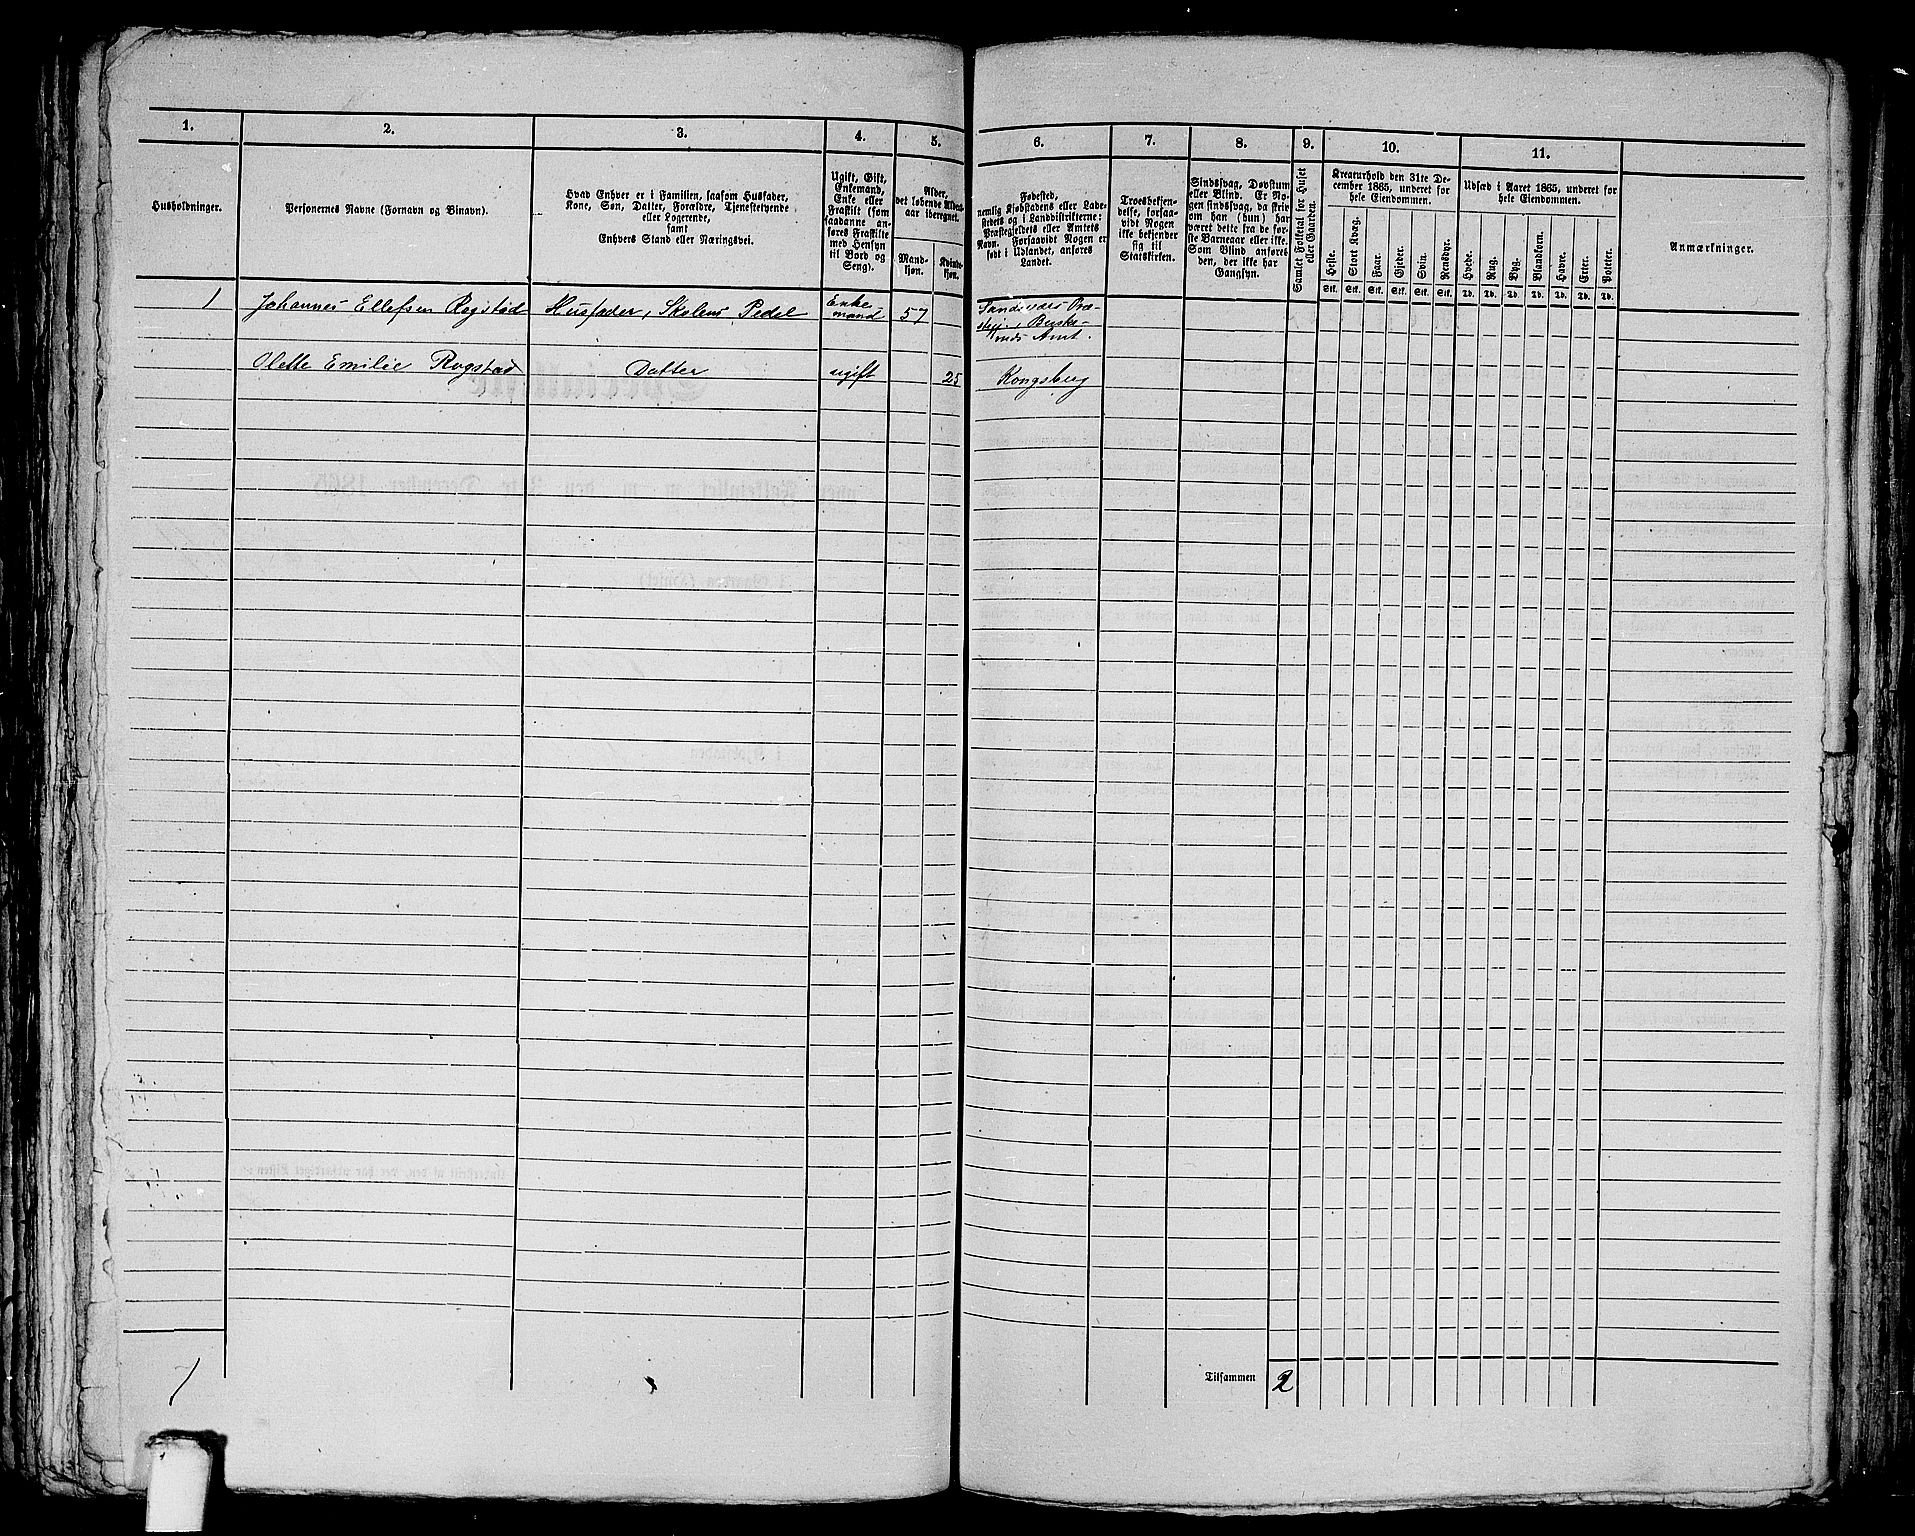 1. 2. 3. 4. 5. 6. 7. 8. 9. 10. 11.
Husholdninger.
Personernes Navne (Fornavn og Binavn).
Hvad Enhver er i Familien, saasom Husfader,
Kone, Søn, Datter, Forældre, Tjenestetyende
eller Logerende,
samt
Enhvers Stand eller Næringsvei.
Ugift, Gift,
Enkemand,
Enke eller
Fraskilt (som
saadanne an-
føres Fraskilte
med Hensyn
til Bord og
Seng).
Alder,
det løbende Alders-
aar iberegnet.
Mand-
kjøn.
Kvinde-
kjøn.
Fødested,
nemlig Kjøbstadens eller Lade-
stedets og i Landdistrikterne:
Præstegjeldets eller Amtets
Navn. Forsaavidt Nogen er
født i Udlandet, anføres
Landet.
Troesbekjen-
delse, forsaa-
vidt Nogen
ikke bekjender
sig til
Statskirken.
Sindssvag, Døvstum
eller Blind. Er No-
gen sindssvag, da skriv
om han (hun) har
været dette fra de før-
ste Barneaar eller ikke.
Som Blind anføres
den, der ikke har
Gangsyn.
Samlet Folketal for Huset
eller Gaarden.
Kreaturhold den 31te De-
cember 1865, underet for
hele Eiendommen.
Heste. Stort Kvæg. Faar. Gjeder. Svin. Rensdyr.
Stk. Stk. Stk. Stk. Stk. Stk.
Udsæd i Aaret 1865, underet for
hele Eiendommen.
Hvede. Rug. Byg. Blandkorn. Havre. Erter. Poteter.
Td. Td. Td. Td. Td. Td. Td.
Anmærkninger.
1 Johannes Ellefsen Rogstad Husfader, Skolens Pedel Enke-
mand 57 Sandsværs Præ-
stegj., Buske-
ruds Amt.
Olette Emilie Rogstad Datter ugift 25 Kongsberg
Tilsammen 2
1